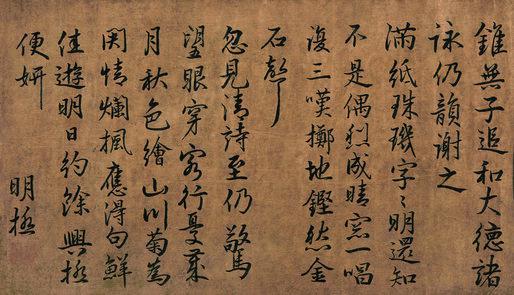 錐無子追和大德諸
詠仍韻謝之
滿紙珠璣字〻明還知
不是偶然成晴窓一唱
復三嘆擲地鏗然金
石聲
忽見清詩至仍驚
望眼穿客行憂歲
月秋色繪山川菊為
関情爛楓應得句鮮
佳遊明日約餘興極
便妍
明極